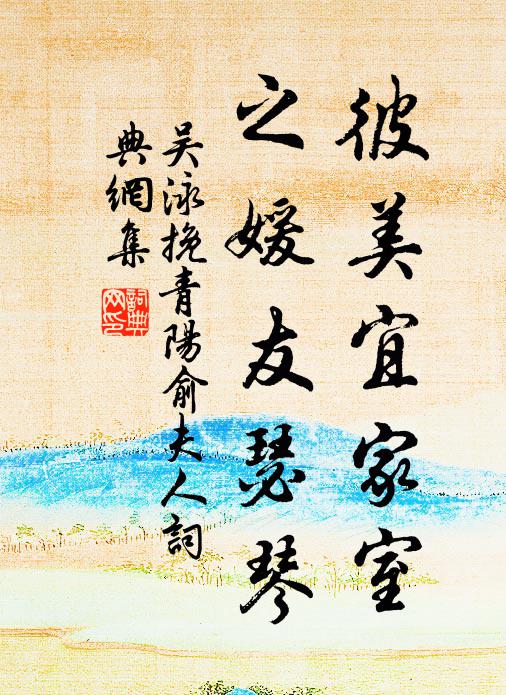 彼美宜家室
之媛友瑟琴
吴泳挽青陽俞夫人詞
典網集
詞典
网印